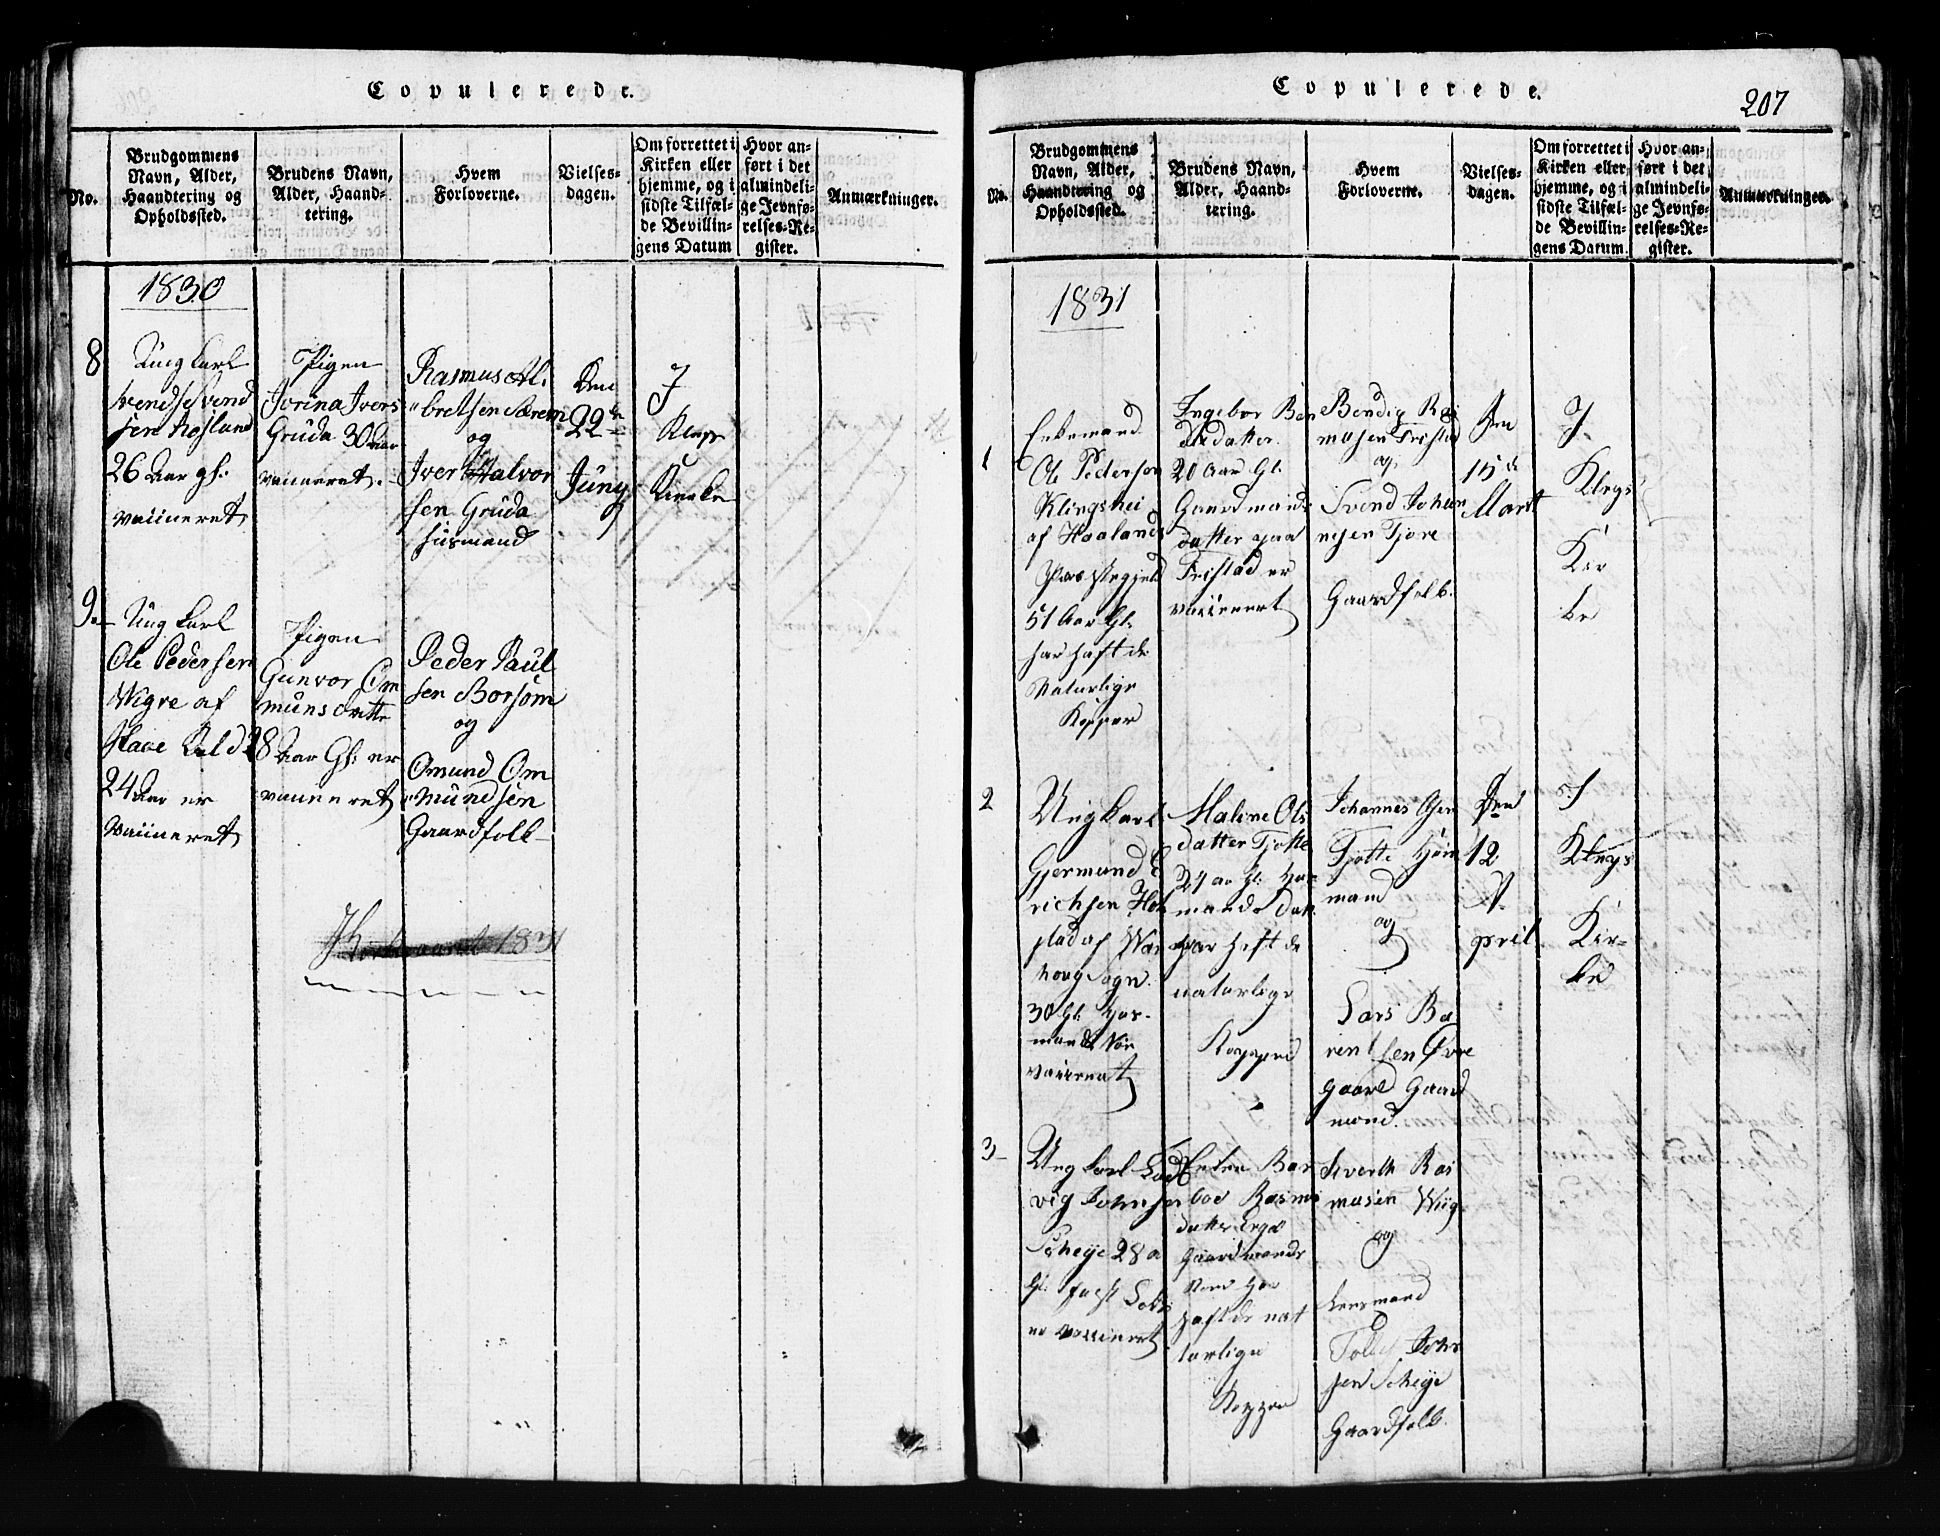 Copulerede.
No.
Brudgommens
Navn, Alder,
Haandtering og
Opholdssted.
Brudens Navn,
Alder, Haand-
tering.
Hvem
Forloverne.
Vielses-
dagen.
Om forrettet i
Kirken eller
hjemme, og i
sidste Tilfæl-
de Bevillin-
gens Datum
Hvor an-
ført i det
almindeli-
ge Jevnfø-
relses-Re-
gister.
Anmærkninger.
1830
8
Ung Karl
Svend Svend
sen
26 Aar gl:
vaccineret
Pigen
Jorina Ivers
Gruda 30 Aar
vaccineret.
Rasmus Al.
bretsen Særem
og
Iver Halvor
sen Gruda
Husmand
Den
22de
Juny
I
Klep
Kirke
9
Ung Karl
Ole Pedersen
Wigre af
24 Aar er
vaccineret
Pigen
Gunvor Om
munsdatte
28 Aar Gl: er
vaccineret
Peder Paul
sen Borsøm
og
Omund Om
mundsen
Gaardfolk
1831
Copulerede.
207
No.
Brudgommens
Navn, Alder,
Haandtering og
Opholdssted.
Brudens Navn,
Alder, Haand-
tering.
Hvem
Forloverne.
Vielses-
dagen.
Om forrettet i
Kirken eller
hjemme, og i
sidste Tilfæl-
de Bevillin-
gens Datum.
Hvor an-
ført i det
almindeli-
ge Jevnfø-
relses-Re-
gister.
Anmærkninger.
1831
1
Enkemand
Ole Pederson
Klingshei
af Haalands
Præstegjeld
51 Aar Gl.
har haft de
Naturlige
Kopper
Ingebor Ben
dixdatter
20 Aar Gl.
Gaardmands
datter paa
Fristad er
vaccinert
Bendix Ras
musen Fristad
og
Svend Johan
nesen Tjøre
Gaardfolk.
Den
15de
Mart
I
Kleps
Kir
ke
2
Ungkarl
Gjermund E
richsen Hob
stad af War
houg Sogn.
30 Gl. Hus-
mand
vaccinert
Maline Ols
datter Tjøtte
24 aar gl. Hus
mands dat
har haft de
naturlige
Kopper
Johannes Olsen
Tjøtte Hus
mand
og
Lars Ba
rentsen Øvre
gaard Gaard
mand.
Den
12
A
pril
I
Kleps
Kir-
ke
3
Ung Karl Lod
vig Johnsen
Scheije 28 a
Gl.
er vaccineret
Enken Bar
boe Rasmus
datter Erga
Gaardmands
haft de nat
turlige
Kopper
Siverth Ras
musen Wiig
og
Lensmand
sen Scheije
Gaardfolk.